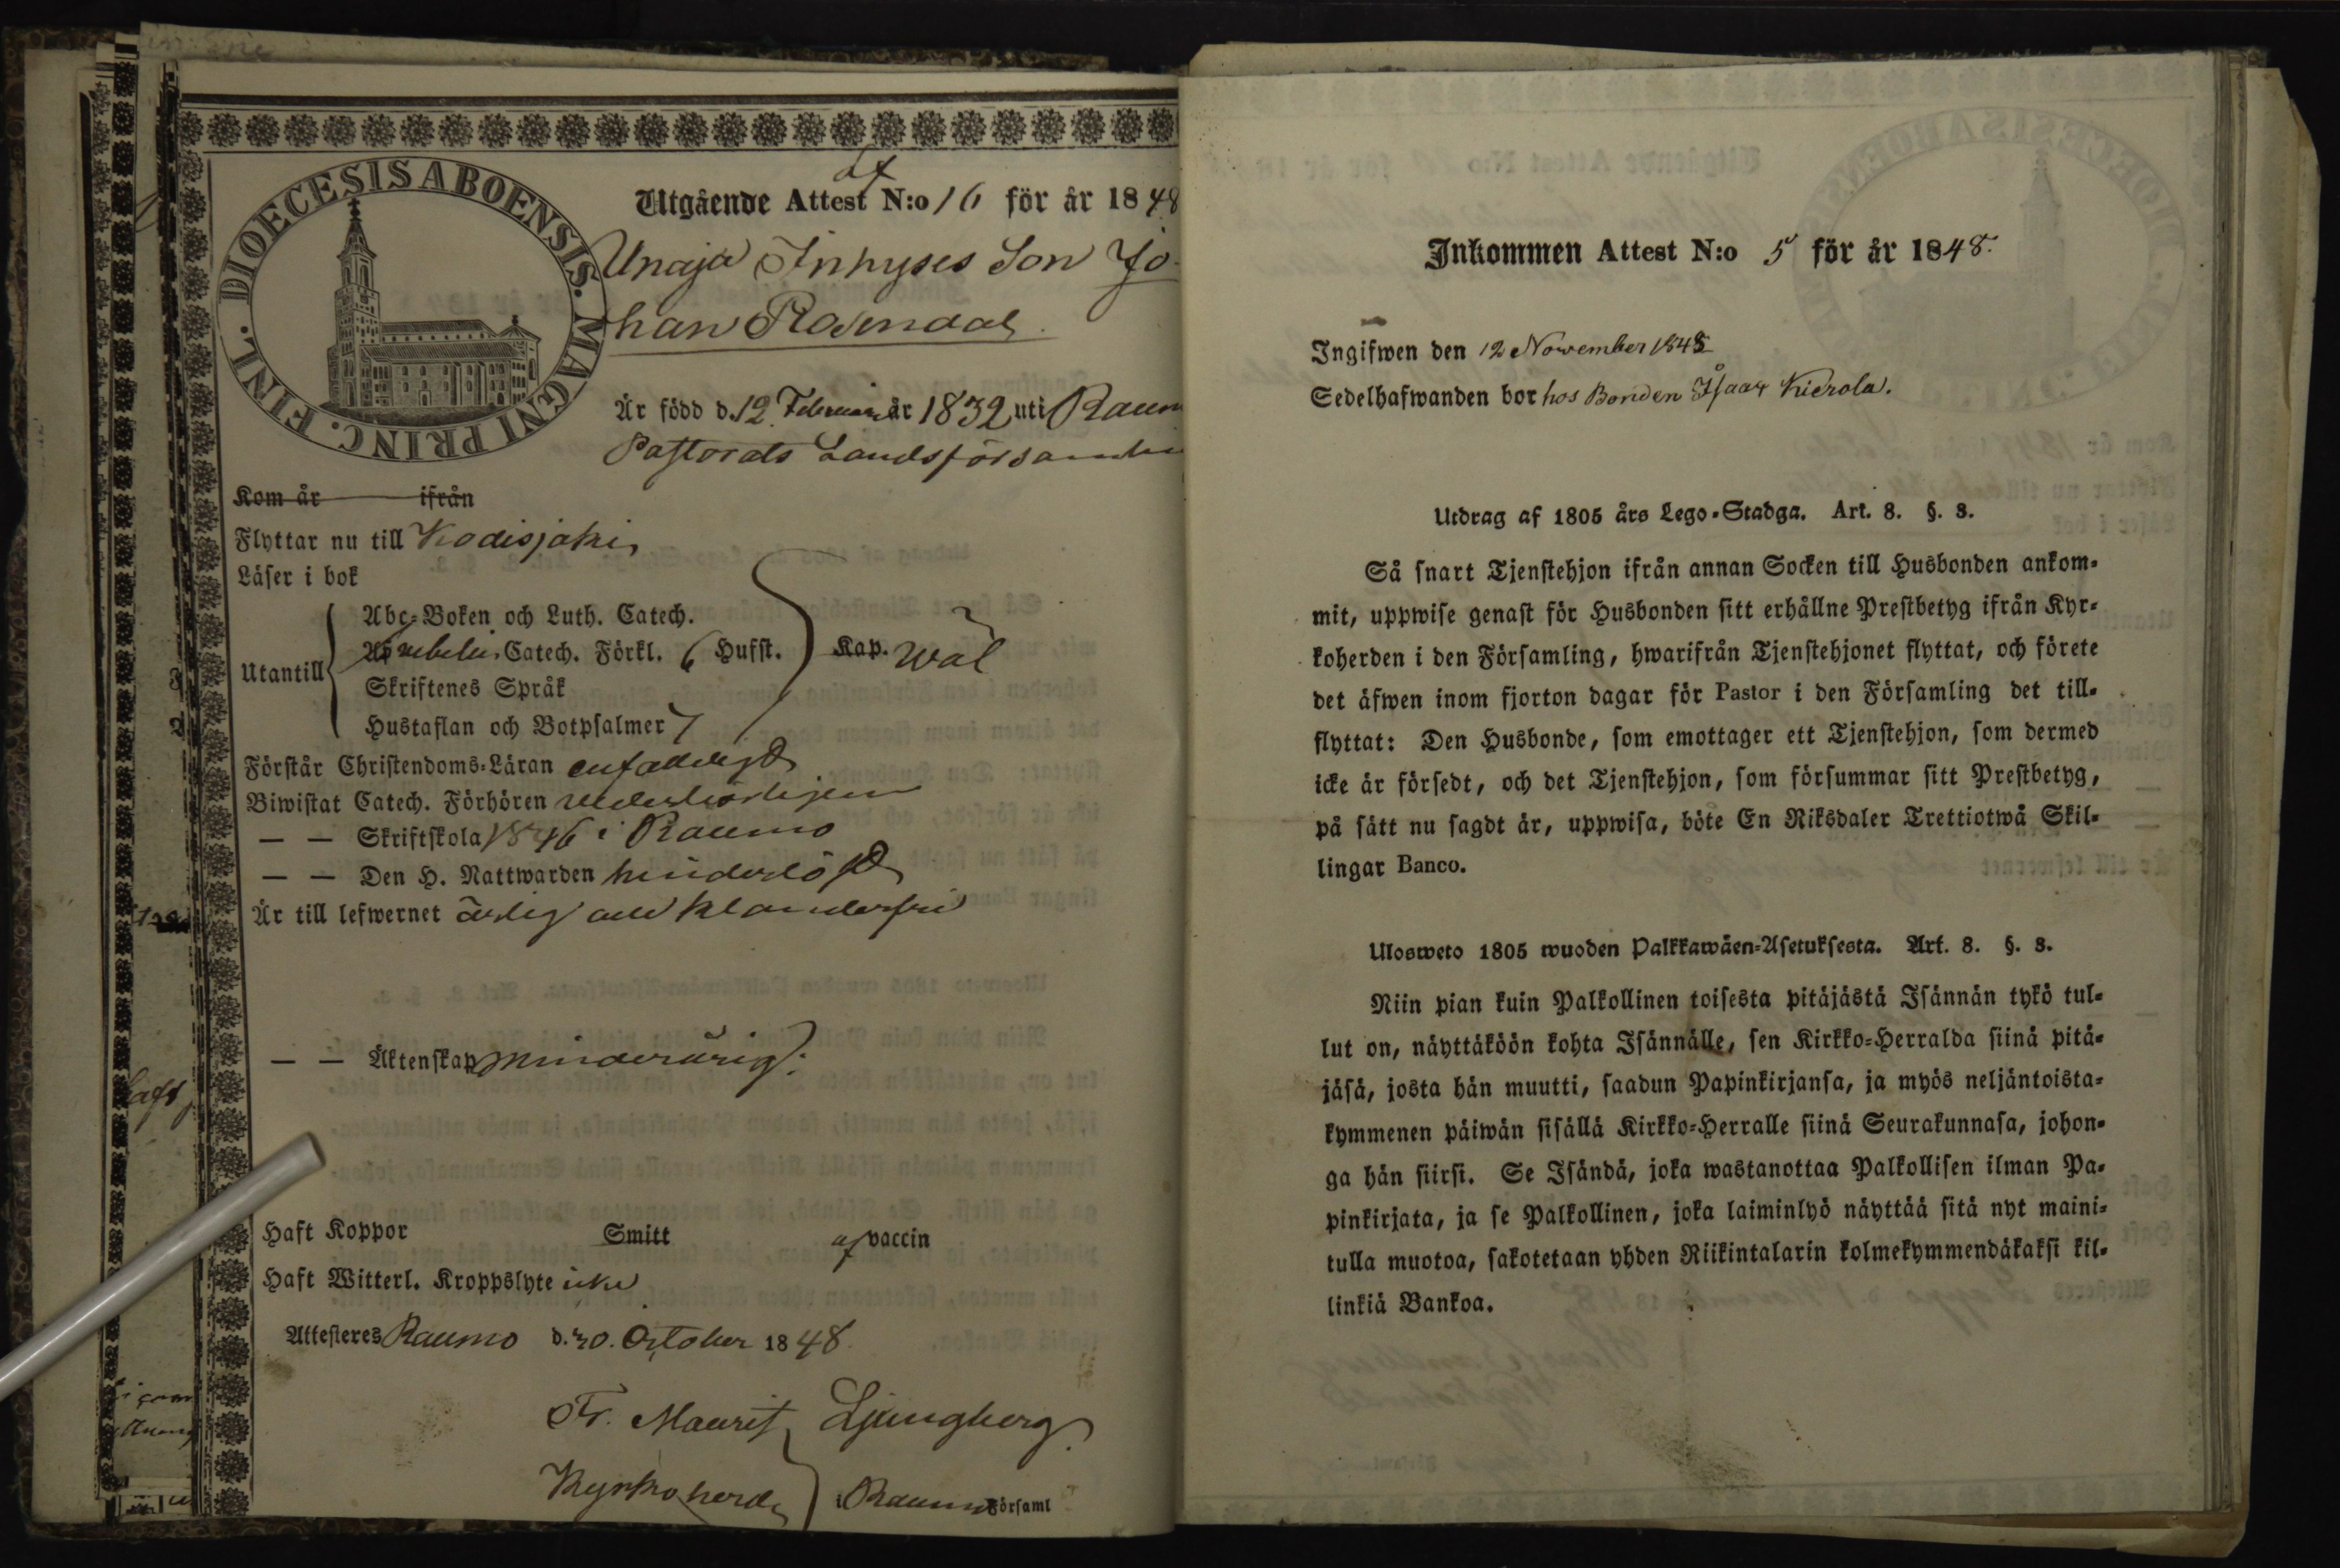 DIOECESIS ABOENSIS. MAGNI PRINC. FINL.
af
Utgående Attest N:o 16 för år 1848
Unaja Inhyses Son Jo-
han Rosendal.
Är född d. 12. Februari år 1832 uti Raum
Pastorats Landsförsamlin
Kom år ifrån
Flyttar nu till Kodisjoki
Läser i bok
Utantill
Abc-Boken och Luth. Catech.
Catech. Förkl. 6 Hufst. Kap. wäl
Skriftenes Språk
Hustaflan och Botpsalmer 7
Förstår Christendoms-Läran enfaldigt
Biwistat Catech. Förhören vederbörligen
— — Skriftskola 1846 i Raumo
— — Den H. Nattwarden hinderlöst
Är till lefwernet ärlig och klanderfri
— — Äktenskap minderårig.
Haft Koppor Smitt af vaccin
Haft Witterl. Kroppslyte icke
Attesteres Raumo d. 30. October 1848.
Fr. Maurit Ljungberg.
Kyrkoherde i Raumo Församl
Inkommen Attest N:o 5 för år 1848.
Ingifwen den 12 November 1848
Sedelhafwanden bor hos Bonden Isaac Kierola.
Utdrag af 1805 års Lego-Stadga. Art. 8. §. 3.
Så snart Tjenstehjon ifrån annan Socken till Husbonden ankom-
mit, uppwise genast för Husbonden sitt erhållne Prestbetyg ifrån Kyr-
koherden i den Församling, hwarifrån Tjenstehjonet flyttat, och förete
det äfwen inom fjorton dagar för Pastor i den Församling det till-
flyttat: Den Husbonde, som emottager ett Tjenstehjon, som dermed
icke är försedt, och det Tjenstehjon, som försummar sitt Prestbetyg,
på sätt nu sagdt är, uppwisa, böte En Riksdaler Trettiotwå Skil-
lingar Banco.
Ulosweto 1805 wuoden Palkkawäen-Asetuksesta. Art. 8. §. 3.
Niin pian kuin Palkollinen toisesta pitäjästä Isännän tykö tul-
lut on, näyttäköön kohta Isännälle, sen Kirkko-Herralda siinä pitä-
jäsä, josta hän muutti, saadun Papinkirjansa, ja myös neljäntoista-
kymmenen päiwän sisällä Kirkko-Herralle siinä Seurakunnasa, johon-
ga hän siirsi. Se Isändä, joka wastanottaa Palkollisen ilman Pa-
pinkirjata, ja se Palkollinen, joka laiminlyö näyttää sitä nyt maini-
tulla muotoa, sakotetaan yhden Riikintalarin kolmekymmendäkaksi kil-
linkiä Bankoa.